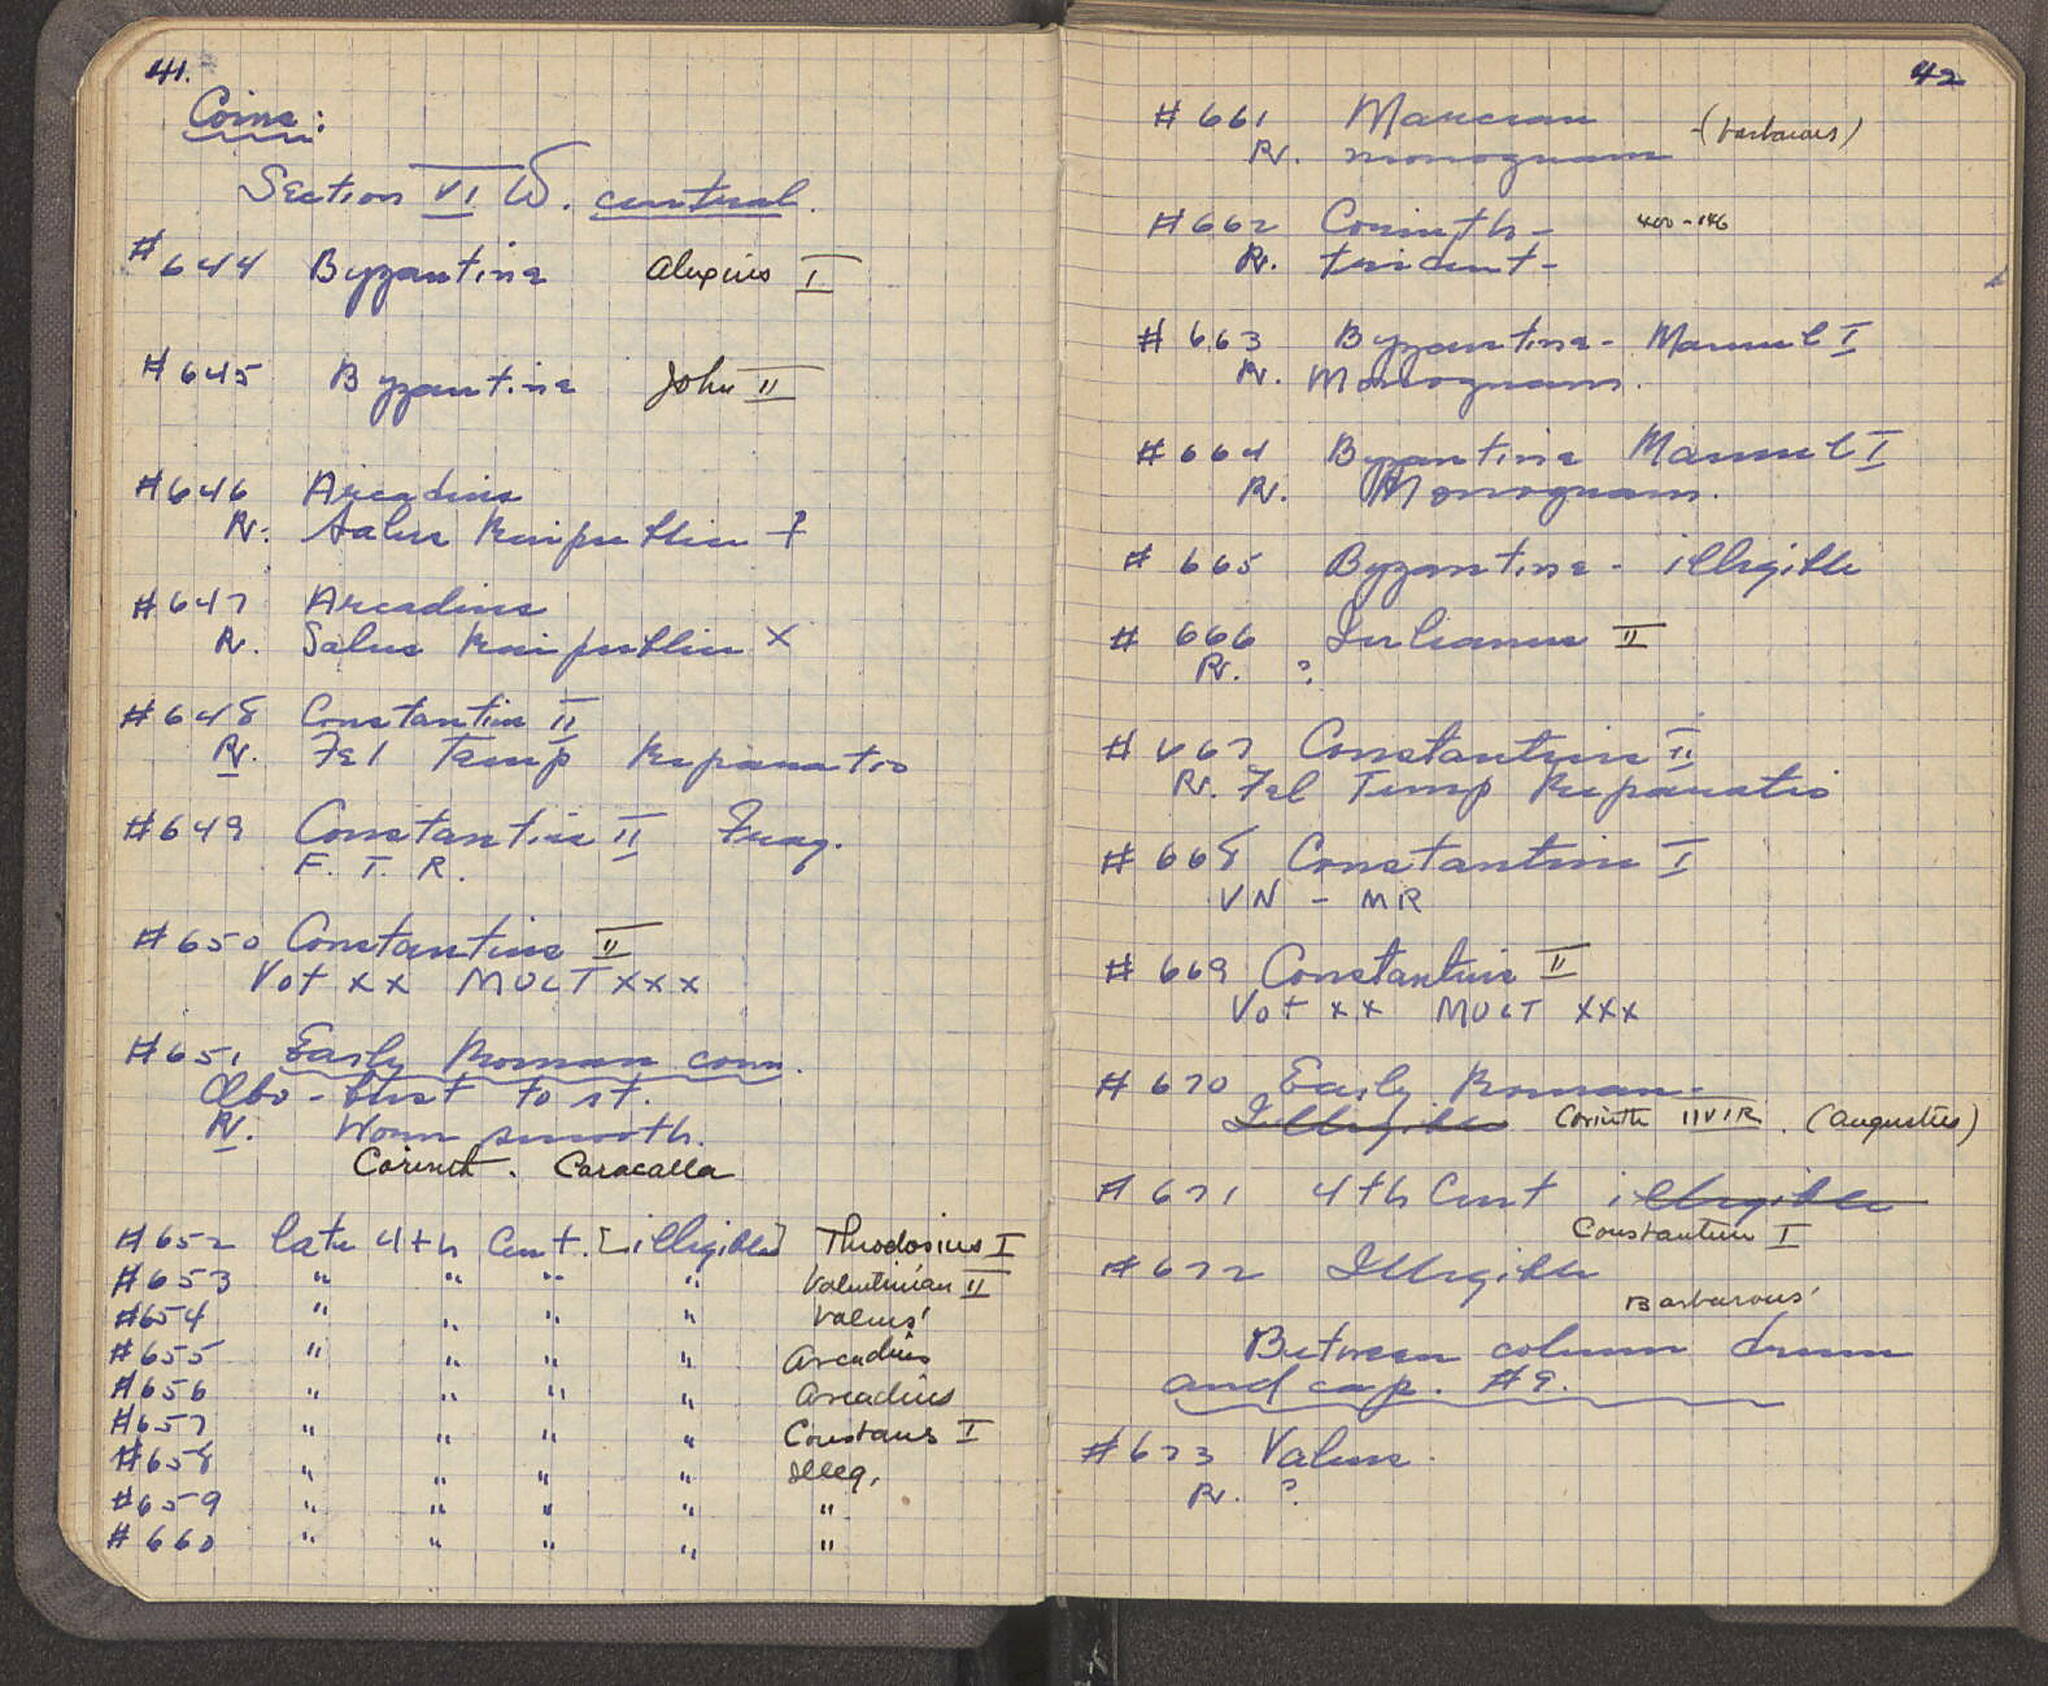 41.
Coins:
Section VI W. central.
#644 Byzantine Alexius I
#645 Byzantine John II
#646 Arcadius
Rv: Salus Reipublice
#647 Arcadius
Rv. Salus Reipublice X
#648 Constantius II
Rv. Fel Temp Reparatio
#649 Constantius II Frag.
F. T. R.
#650 Constantius II
Vot xx MULT xxx
#651 Early Roman coin.
Obv - bust to rt.
Rv. Worn smooth.
Corinth. Caracalla
#652 late 4th Cent. [illegible] Theodosius I
#653 " " " " Valentinian II
#654 " " " " Valens
#655 " " " " Arcadius
#656 " " " " Arcadius
#657 " " " " Constans I
#658 " " " " Illeg.
#659 " " " " "
#660 " " " " "
42
#661 Marcian
Rv. monogram (barbarous)
#662 Corinth - 400-146
Rv. trident -
#663 Byzantine - Manuel I
Rv. Monogram.
#664 Byzantine Manuel I
Rv. Monogram.
#665 Byzantine - illegible
#666 Julianus II
Rv. ?
#667 Constantius II
Rv. Fel Temp Reparatio
#668 Constantine I
VN - MR
#669 Constantius II
Vot xx MULT xxx
#670 Early Roman -
Illegible Corinth IIVIR. (Augustus)
#671 4th Cent illegible
Constantine I
#672 Illegible
Barbarous
Between column drum
and cap. #9.
#673 Valens.
Rv. ?